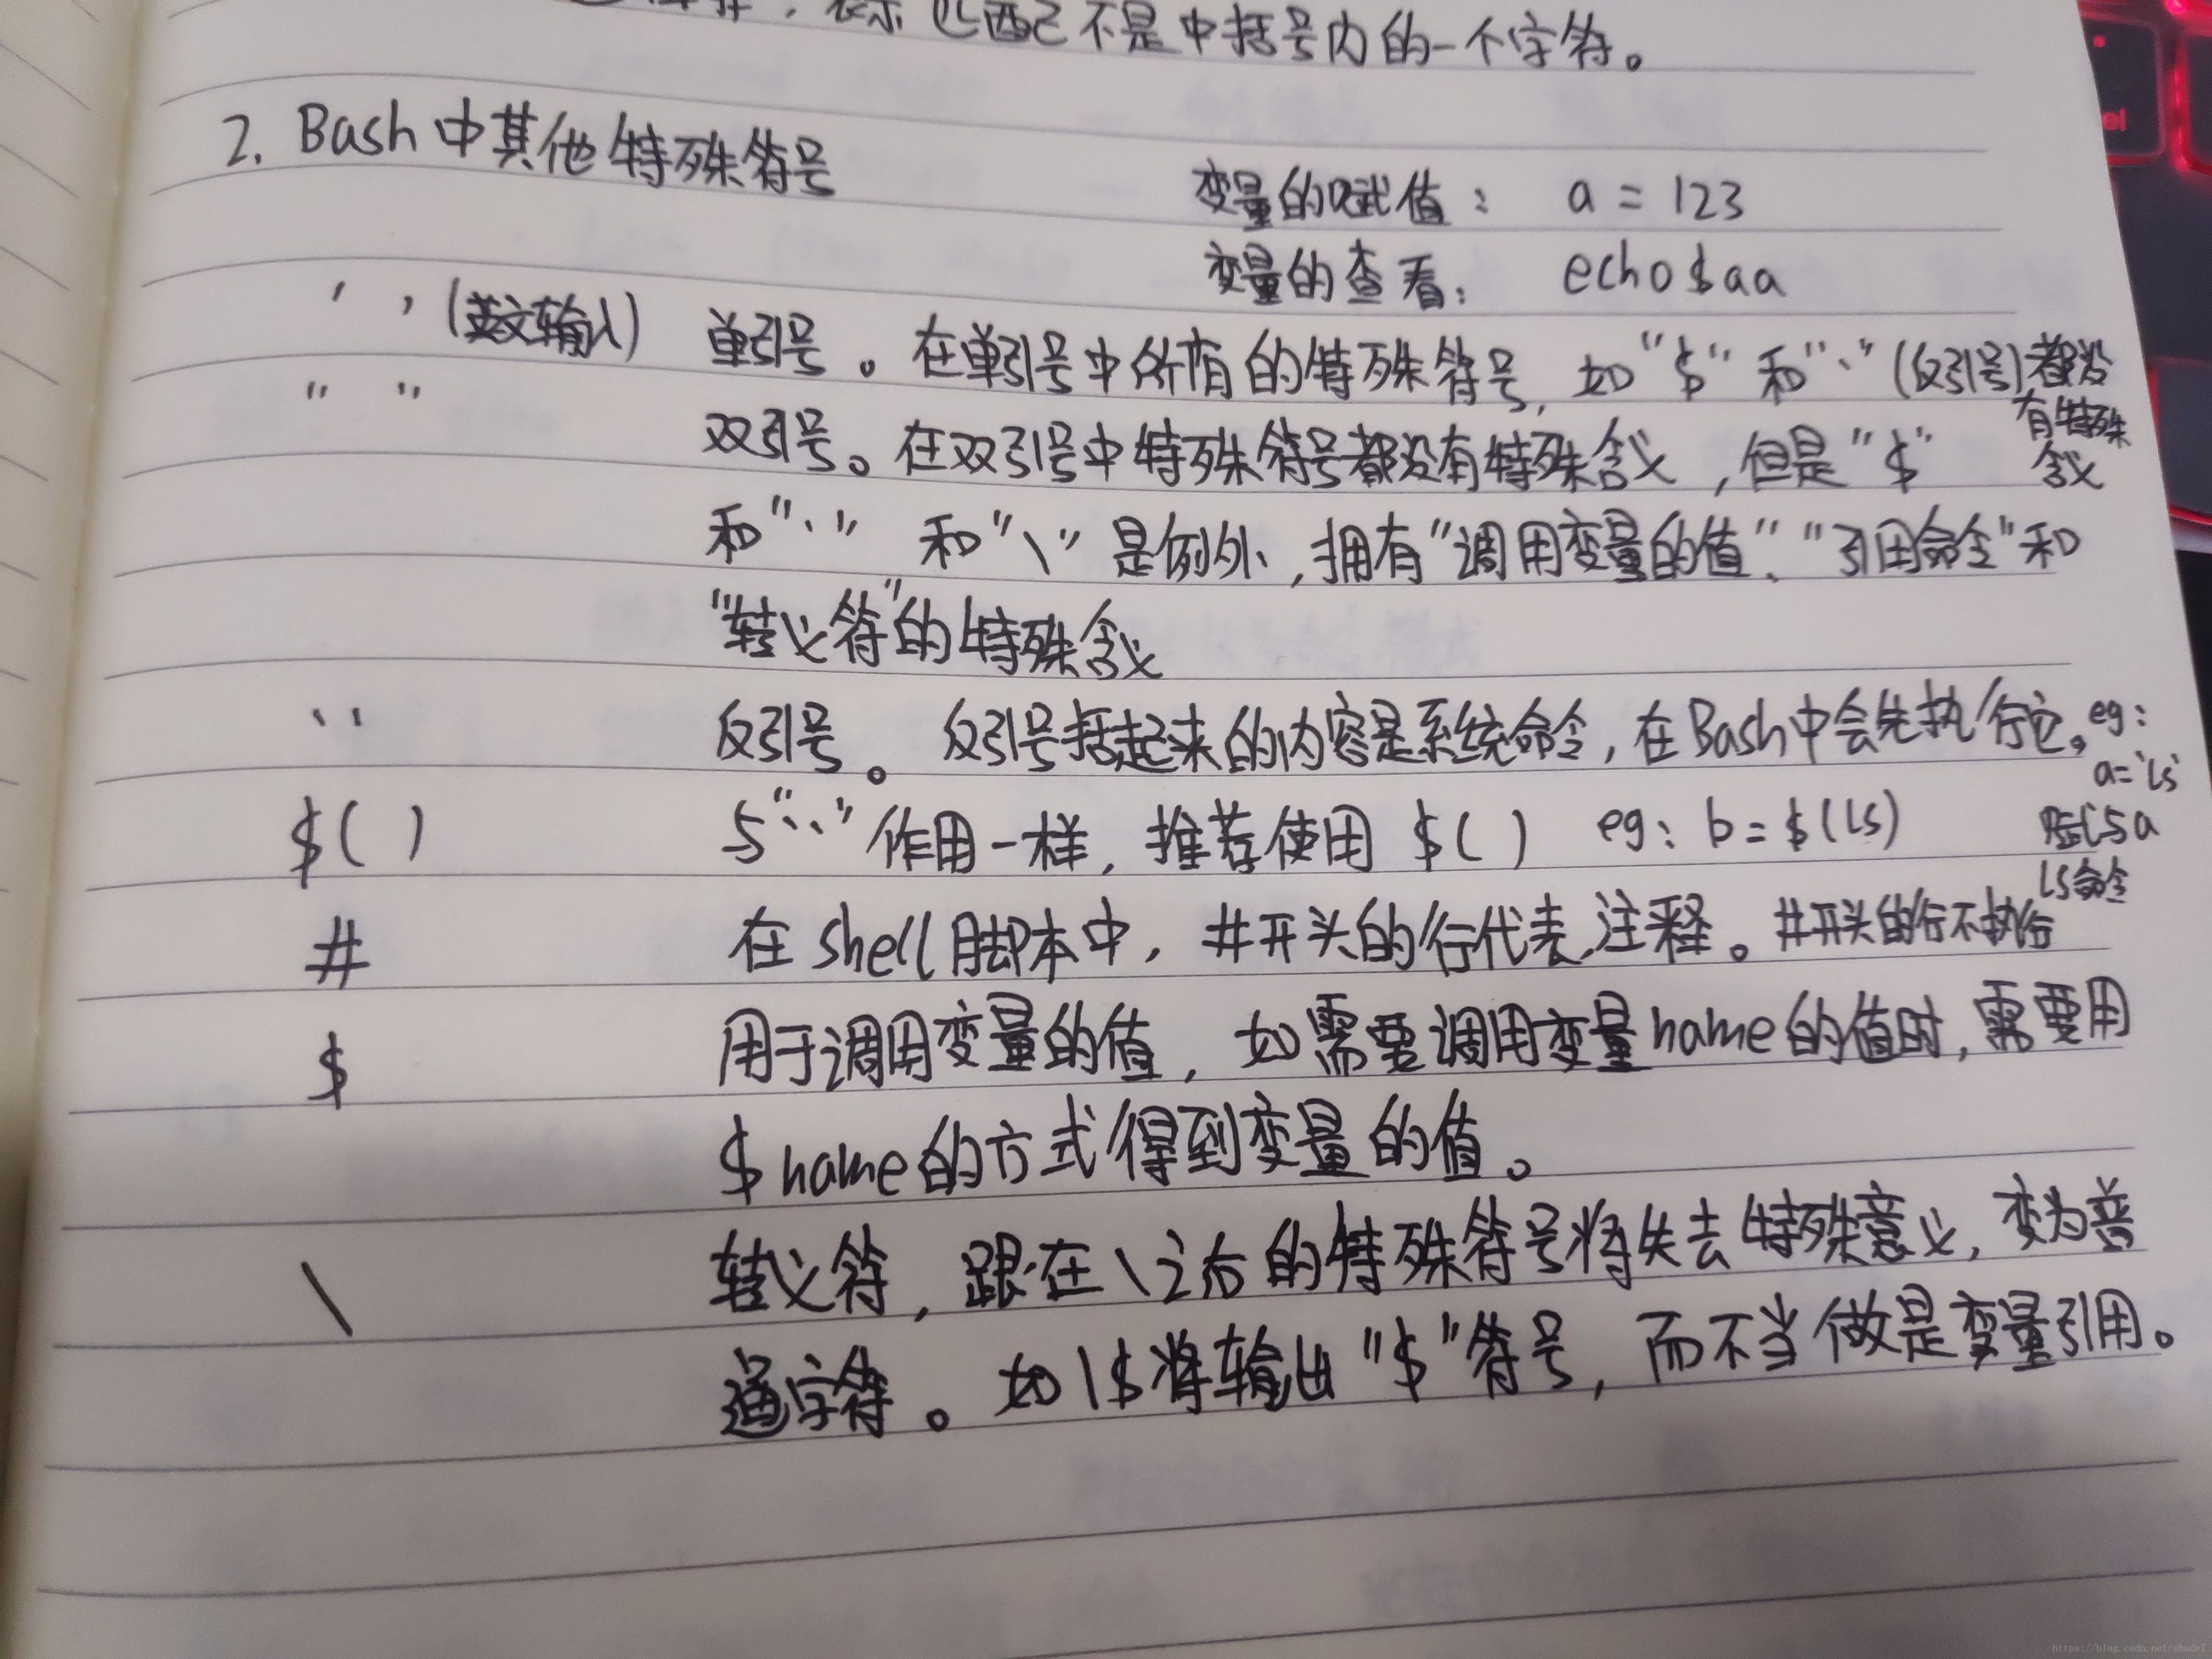 表示匹配不是中括号内的一个字符。
2. Bash中其他特殊符号
变量的赋值: a = 123
变量的查看: echo $aa
' ' (英文输入) 单引号。在单引号中所有的特殊符号, 如"$"和"`"(反引号)都没
有特殊
含义
" " 双引号。在双引号中特殊符号都没有特殊含义,但是"$"
和"`" 和"\"是例外,拥有"调用变量的值"、"引用命令"和
"转义符"的特殊含义
` ` 反引号。反引号括起来的内容是系统命令,在Bash中会先执行它。eg:
a=`ls`
赋与a
ls命令
$( ) 与"``"作用一样,推荐使用 $( ) eg: b = $(ls)
# 在shell脚本中, #开头的行代表注释。#开头的行不执行
$ 用于调用变量的值, 如需要调用变量name的值时,需要用
$name的方式得到变量的值。
\ 转义符,跟在\之后的特殊符号将失去特殊意义,变为普
通字符。如\$将输出"$"符号,而不当做是变量引用。
https://blog.csdn.net/shade7